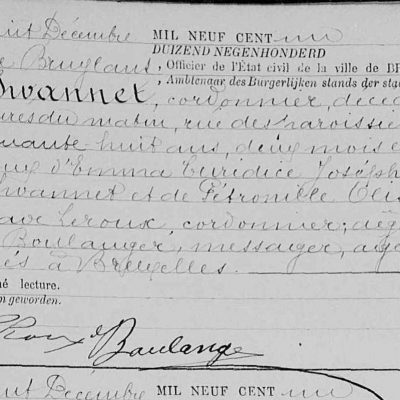 Décembre MIL NEUF CENT un
DUIZEND NEGENHONDERD
Bruylant, Officier de l'État civil de la ville de BR
, Ambtenaar des Burgerlijken stands der sta
Swannet, cordonnier, décéd
res du matin, rue des
uante huit ans, deux mois e
d'Emma Euridice Joséph
wannet et de Pétronille Elis
ave Leroux, cordonnier, âg
Boulanger, messager, âg
és à Bruxelles.
né lecture.
n geworden.
Roux Boulange
Décembre MIL NEUF CENT un